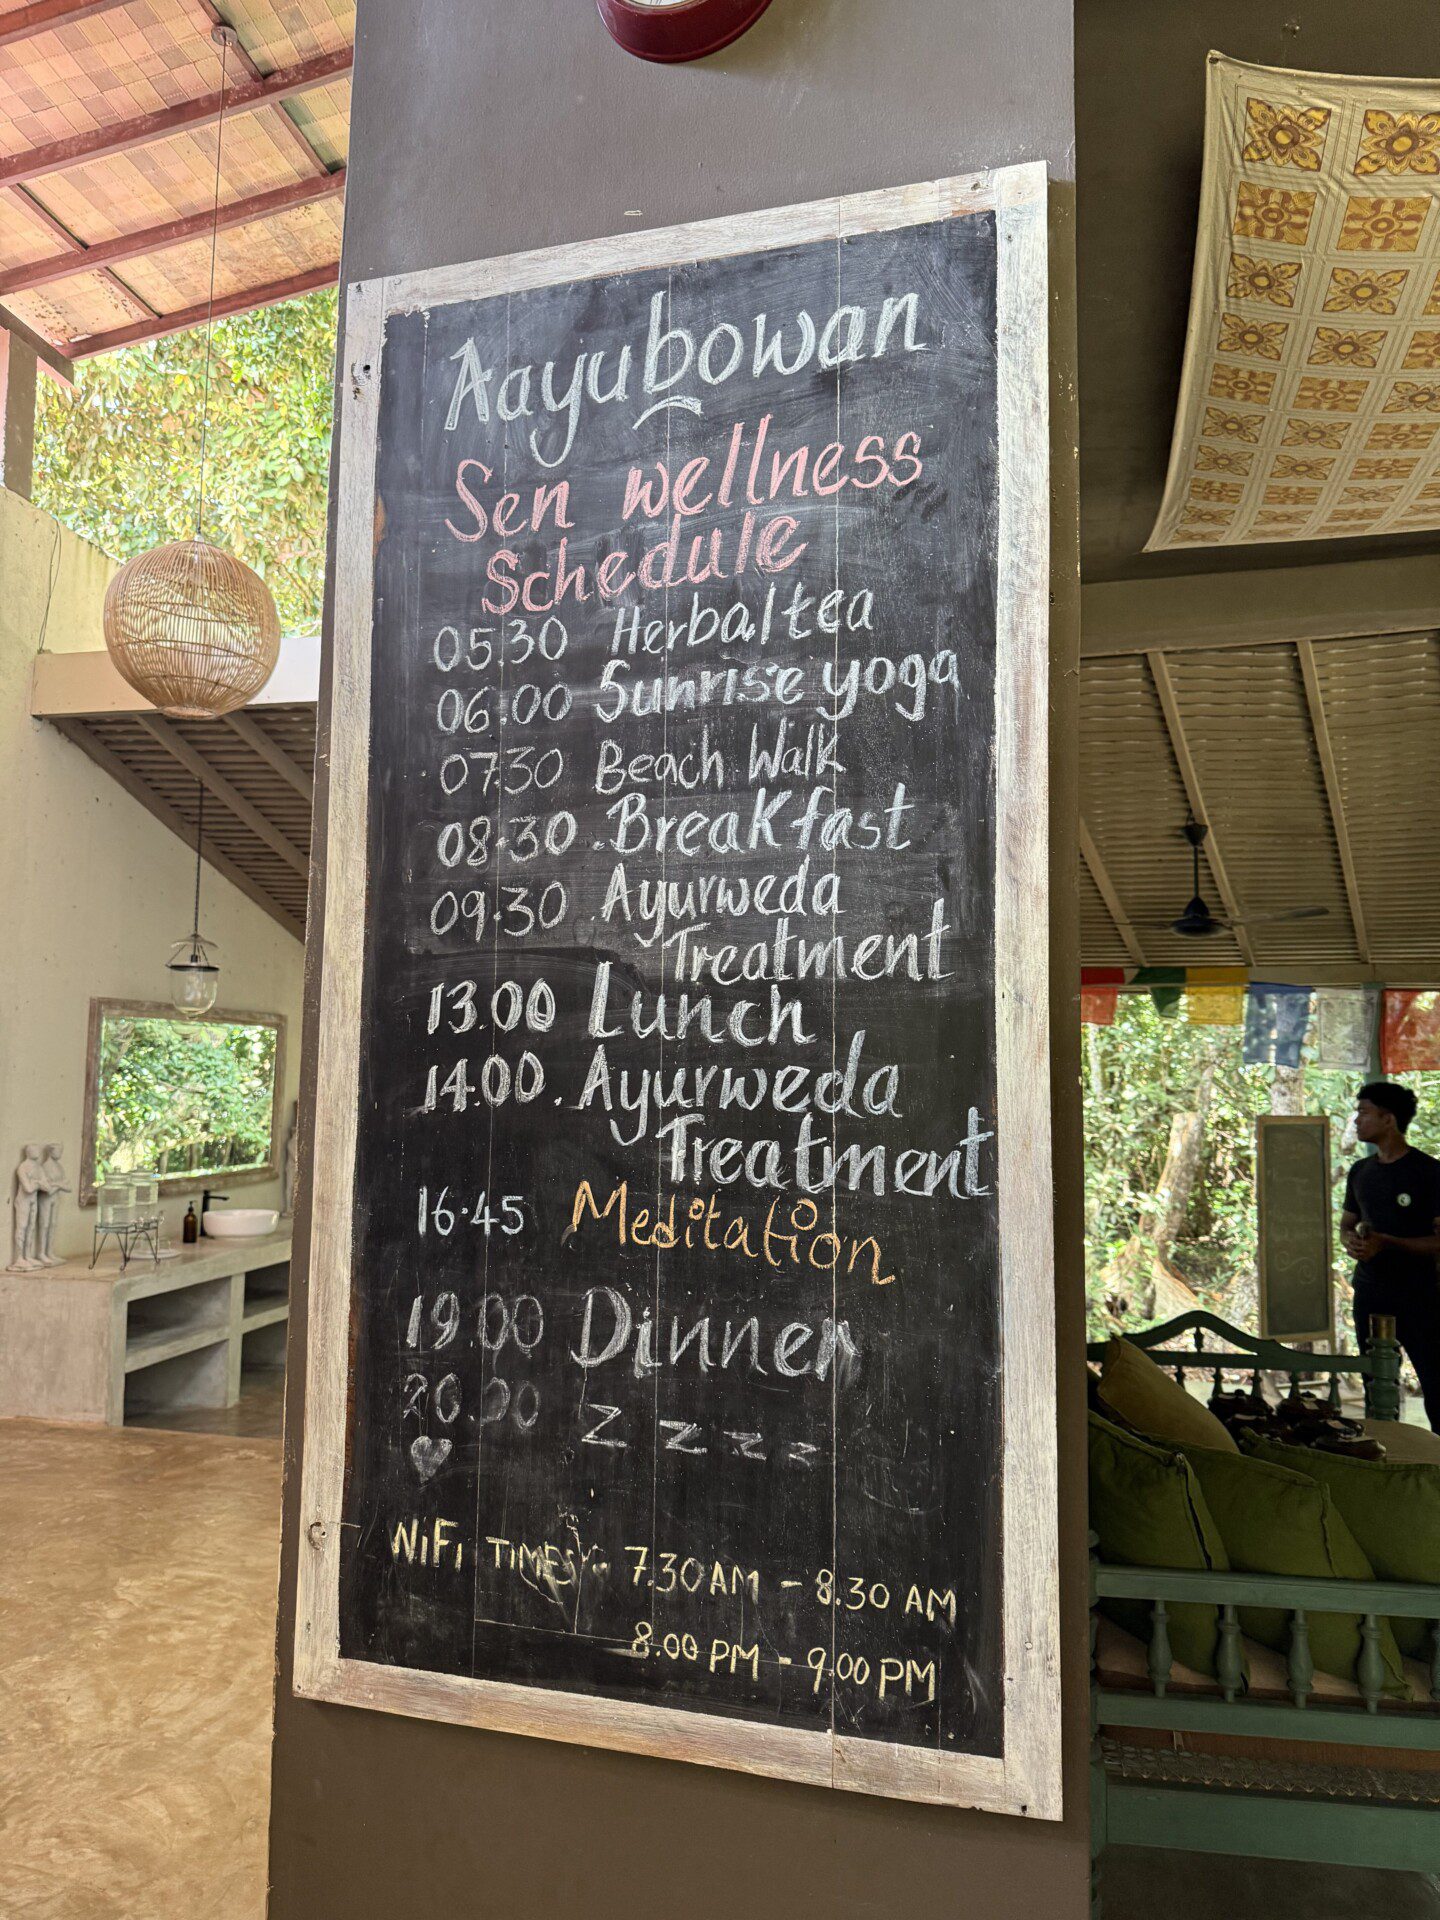 Aayubowan
Sen wellness
Schedule
05.30 Herbal tea
06.00 Sunrise yoga
07.30 Beach Walk
08.30 . Breakfast
09.30 . Ayurweda
Treatment
13.00 Lunch
14.00 . Ayurweda
Treatment
16.45 Meditation
19.00 Dinner
20.00 z z z z
WiFi TIMES :- 7.30 AM - 8.30 AM
8.00 PM - 9.00 PM